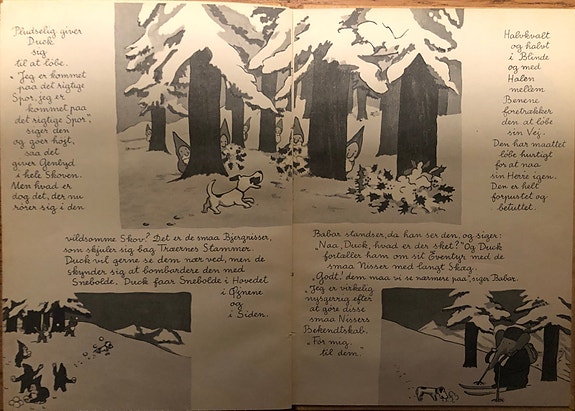 Pludselig giver
Duck
sig
til at løbe.
„Jeg er kommet
paa det rigtige
Spor, jeg er
kommet paa
det rigtige Spor",
siger den
og gøer højt,
saa det
giver Genlyd
i hele Skoven.
Men hvad er
dog det, der nu
rører sig i den
vildsomme Skov? Det er de smaa Bjergnisser,
som skjuler sig bag Træernes Stammer.
Duck vil gerne se dem nær ved, men de
skynder sig at bombardere den med
Snebolde. Duck faar Snebolde i Hovedet
i Øjnene
og
i Siden.
Halvkvalt
og halvt
i Blinde
og med
Halen
mellem
Benene
foretrækker
den at løbe
sin Vej.
Den har maattet
løbe hurtigt
for at naa
sin Herre igen.
Den er helt
forpustet og
beluttet.
Babar standser, da han ser den, og siger:
„Naa, Duck, hvad er der sket?" Og Duck
fortæller ham om sit Eventyr med de
smaa Nisser med langt Skæg.
„Godt! dem maa vi se nærmere paa", siger Babar.
„Jeg er virkelig
nysgerrig efter
at gøre disse
smaa Nissers
Bekendtskab.
„Før mig
til dem."